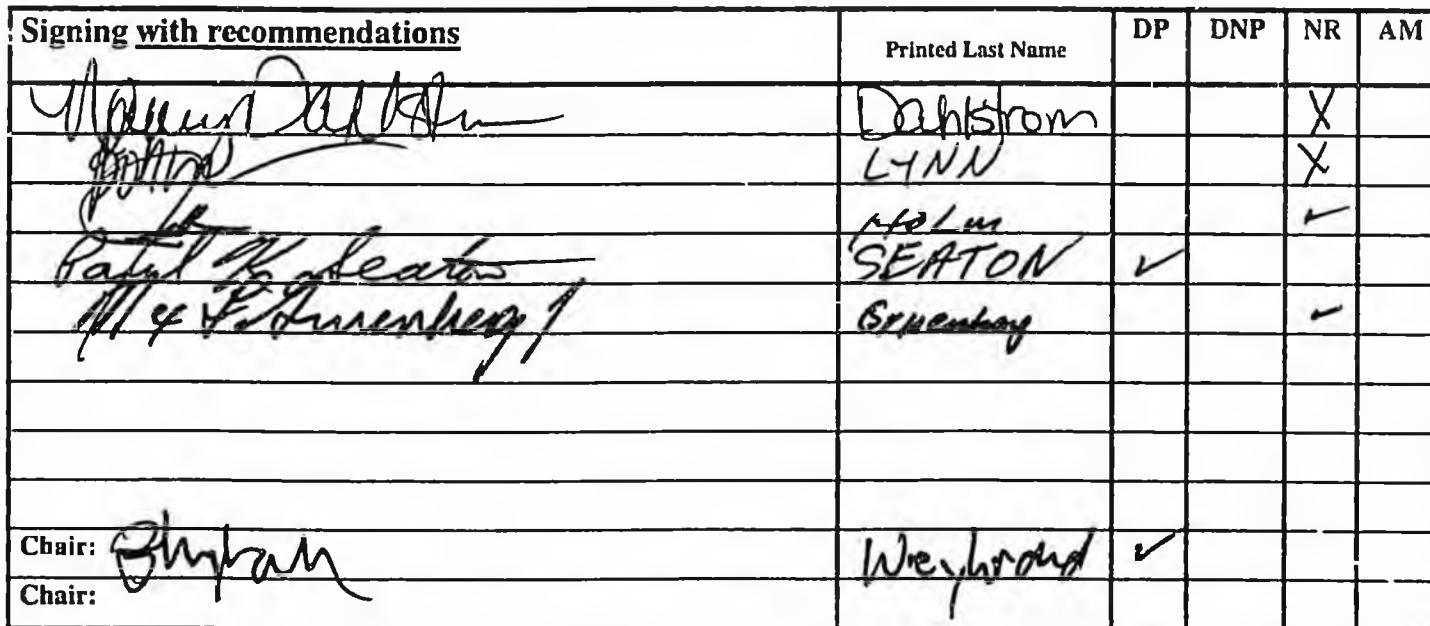 Signing with recommendations Printed Last Name DP DNP NR AM
Dahlstrom X
LYNN X
Holm ✓
Patul K Seaton SEATON ✓
Max F. Gruenberg Jr Gruenberg ✓
Chair: Weyhrauch ✓
Chair: